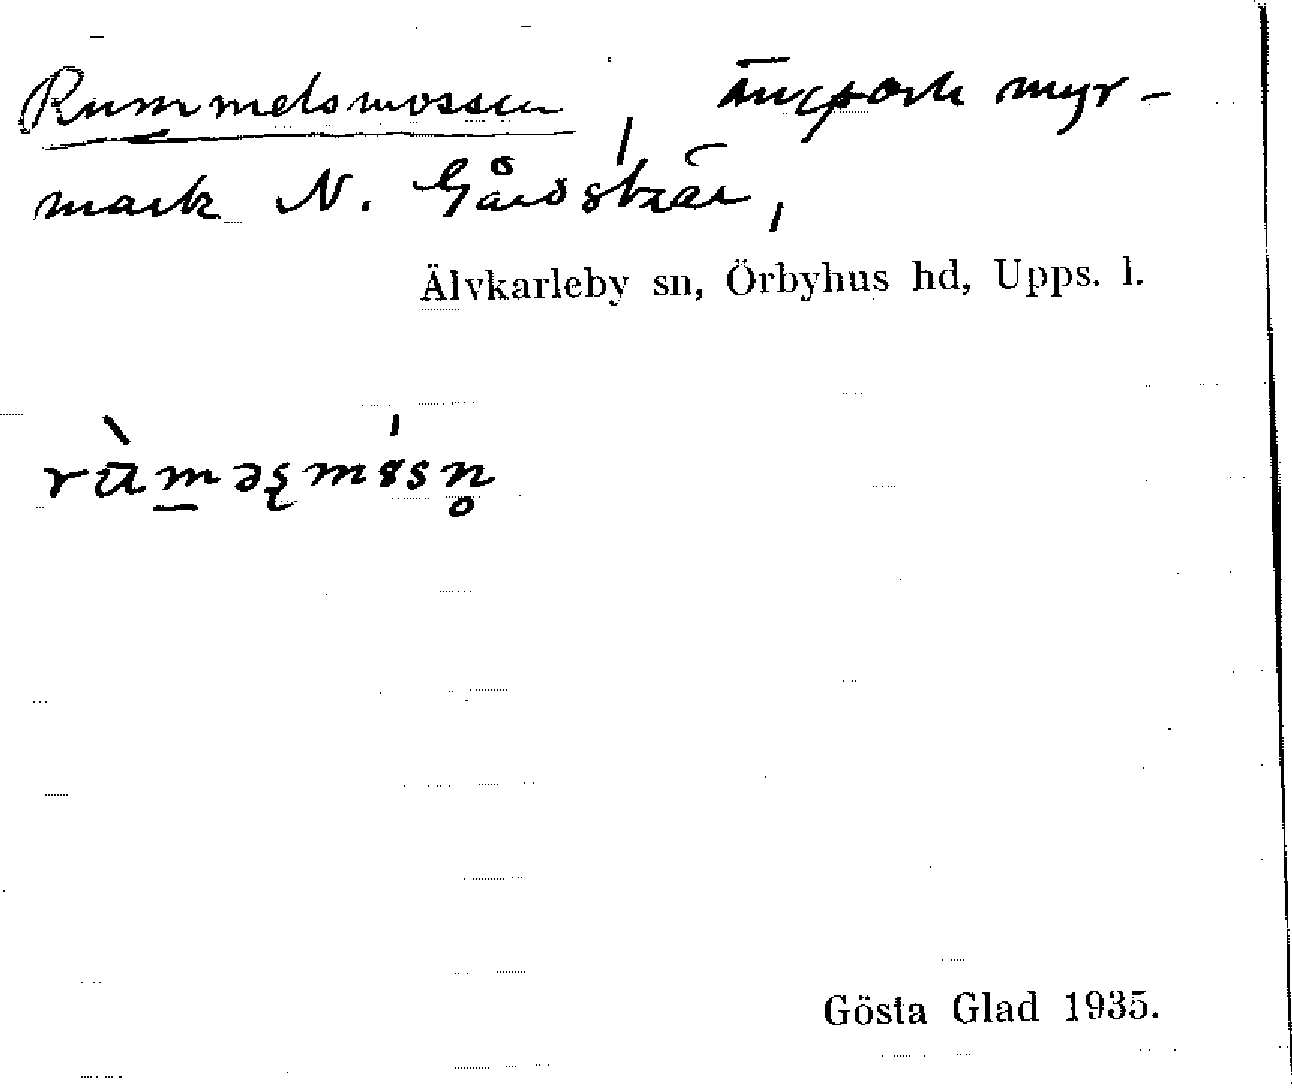 Rummelsmossen, myr-
mark N. Gårdskär,
Älvkarleby sn, Örbyhus hd, Upps. l.
rùm̲əʂmósn̥
Gösta Glad 1935.